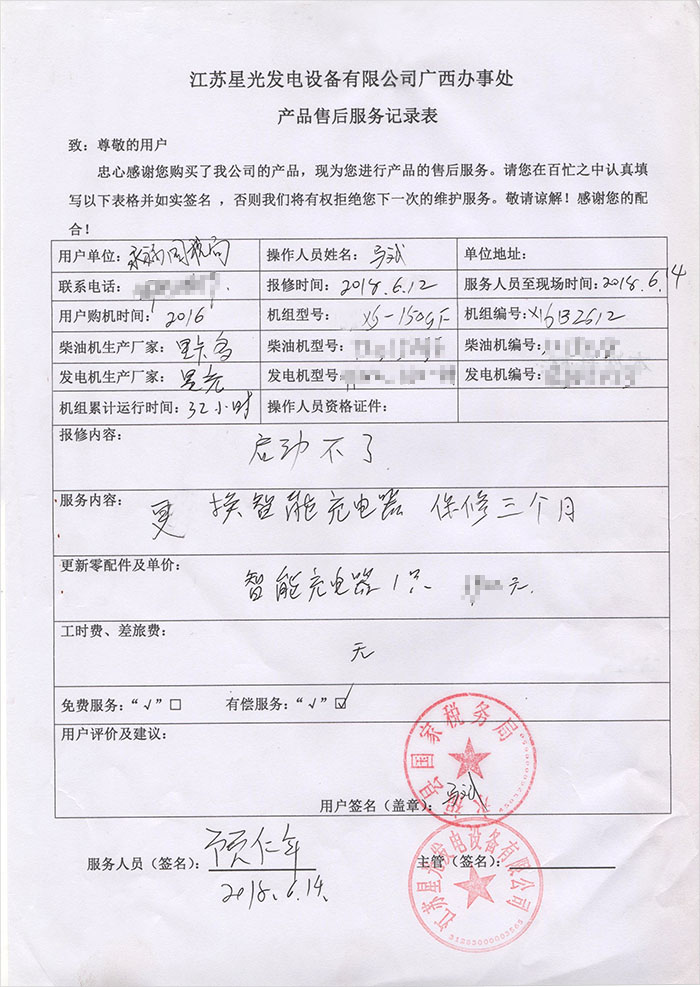 江苏星光发电设备有限公司广西办事处
产品售后服务记录表
致：尊敬的用户
忠心感谢您购买了我公司的产品，现为您进行产品的售后服务。请您在百忙之中认真填
写以下表格并如实签名，否则我们将有权拒绝您下一次的维护服务。敬请谅解！感谢您的配
合！
用户单位：永福国税局 操作人员姓名： 单位地址：
联系电话： 报修时间：2018.6.12 服务人员至现场时间：2018.6.14
用户购机时间：2016 机组型号：XG-150GF 机组编号：
柴油机生产厂家：里卡多 柴油机型号： 柴油机编号：
发电机生产厂家：星光 发电机型号： 发电机编号：
机组累计运行时间：32小时 操作人员资格证件：
报修内容：
启动不了
服务内容：
更换智能充电器 保修三个月
更新零配件及单价：
智能充电器1只 元.
工时费、差旅费：
无
免费服务：“√”□ 有偿服务：“√”☑
用户评价及建议：
永福县国家税务局
用户签名（盖章）：
服务人员（签名）：贾仁年 主管（签名）：
2018.6.14.
江苏星光发电设备有限公司